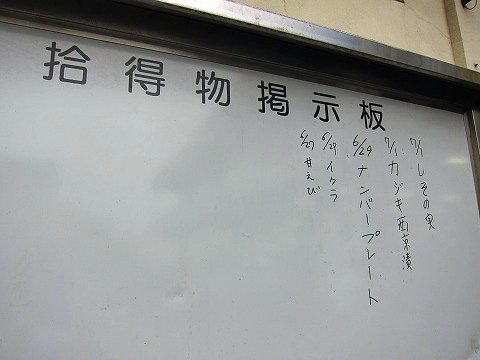 拾得物掲示板
7/1 しその実
7/1 カジキ西京漬
6/29 ナンバープレート
6/29 イクラ
6/27 甘えび